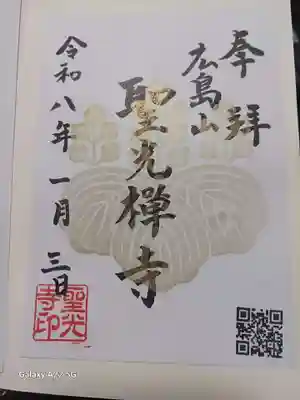 奉拝
広島山
聖光禅寺
令和八年一月三日
聖光寺印
Galaxy A22 5G